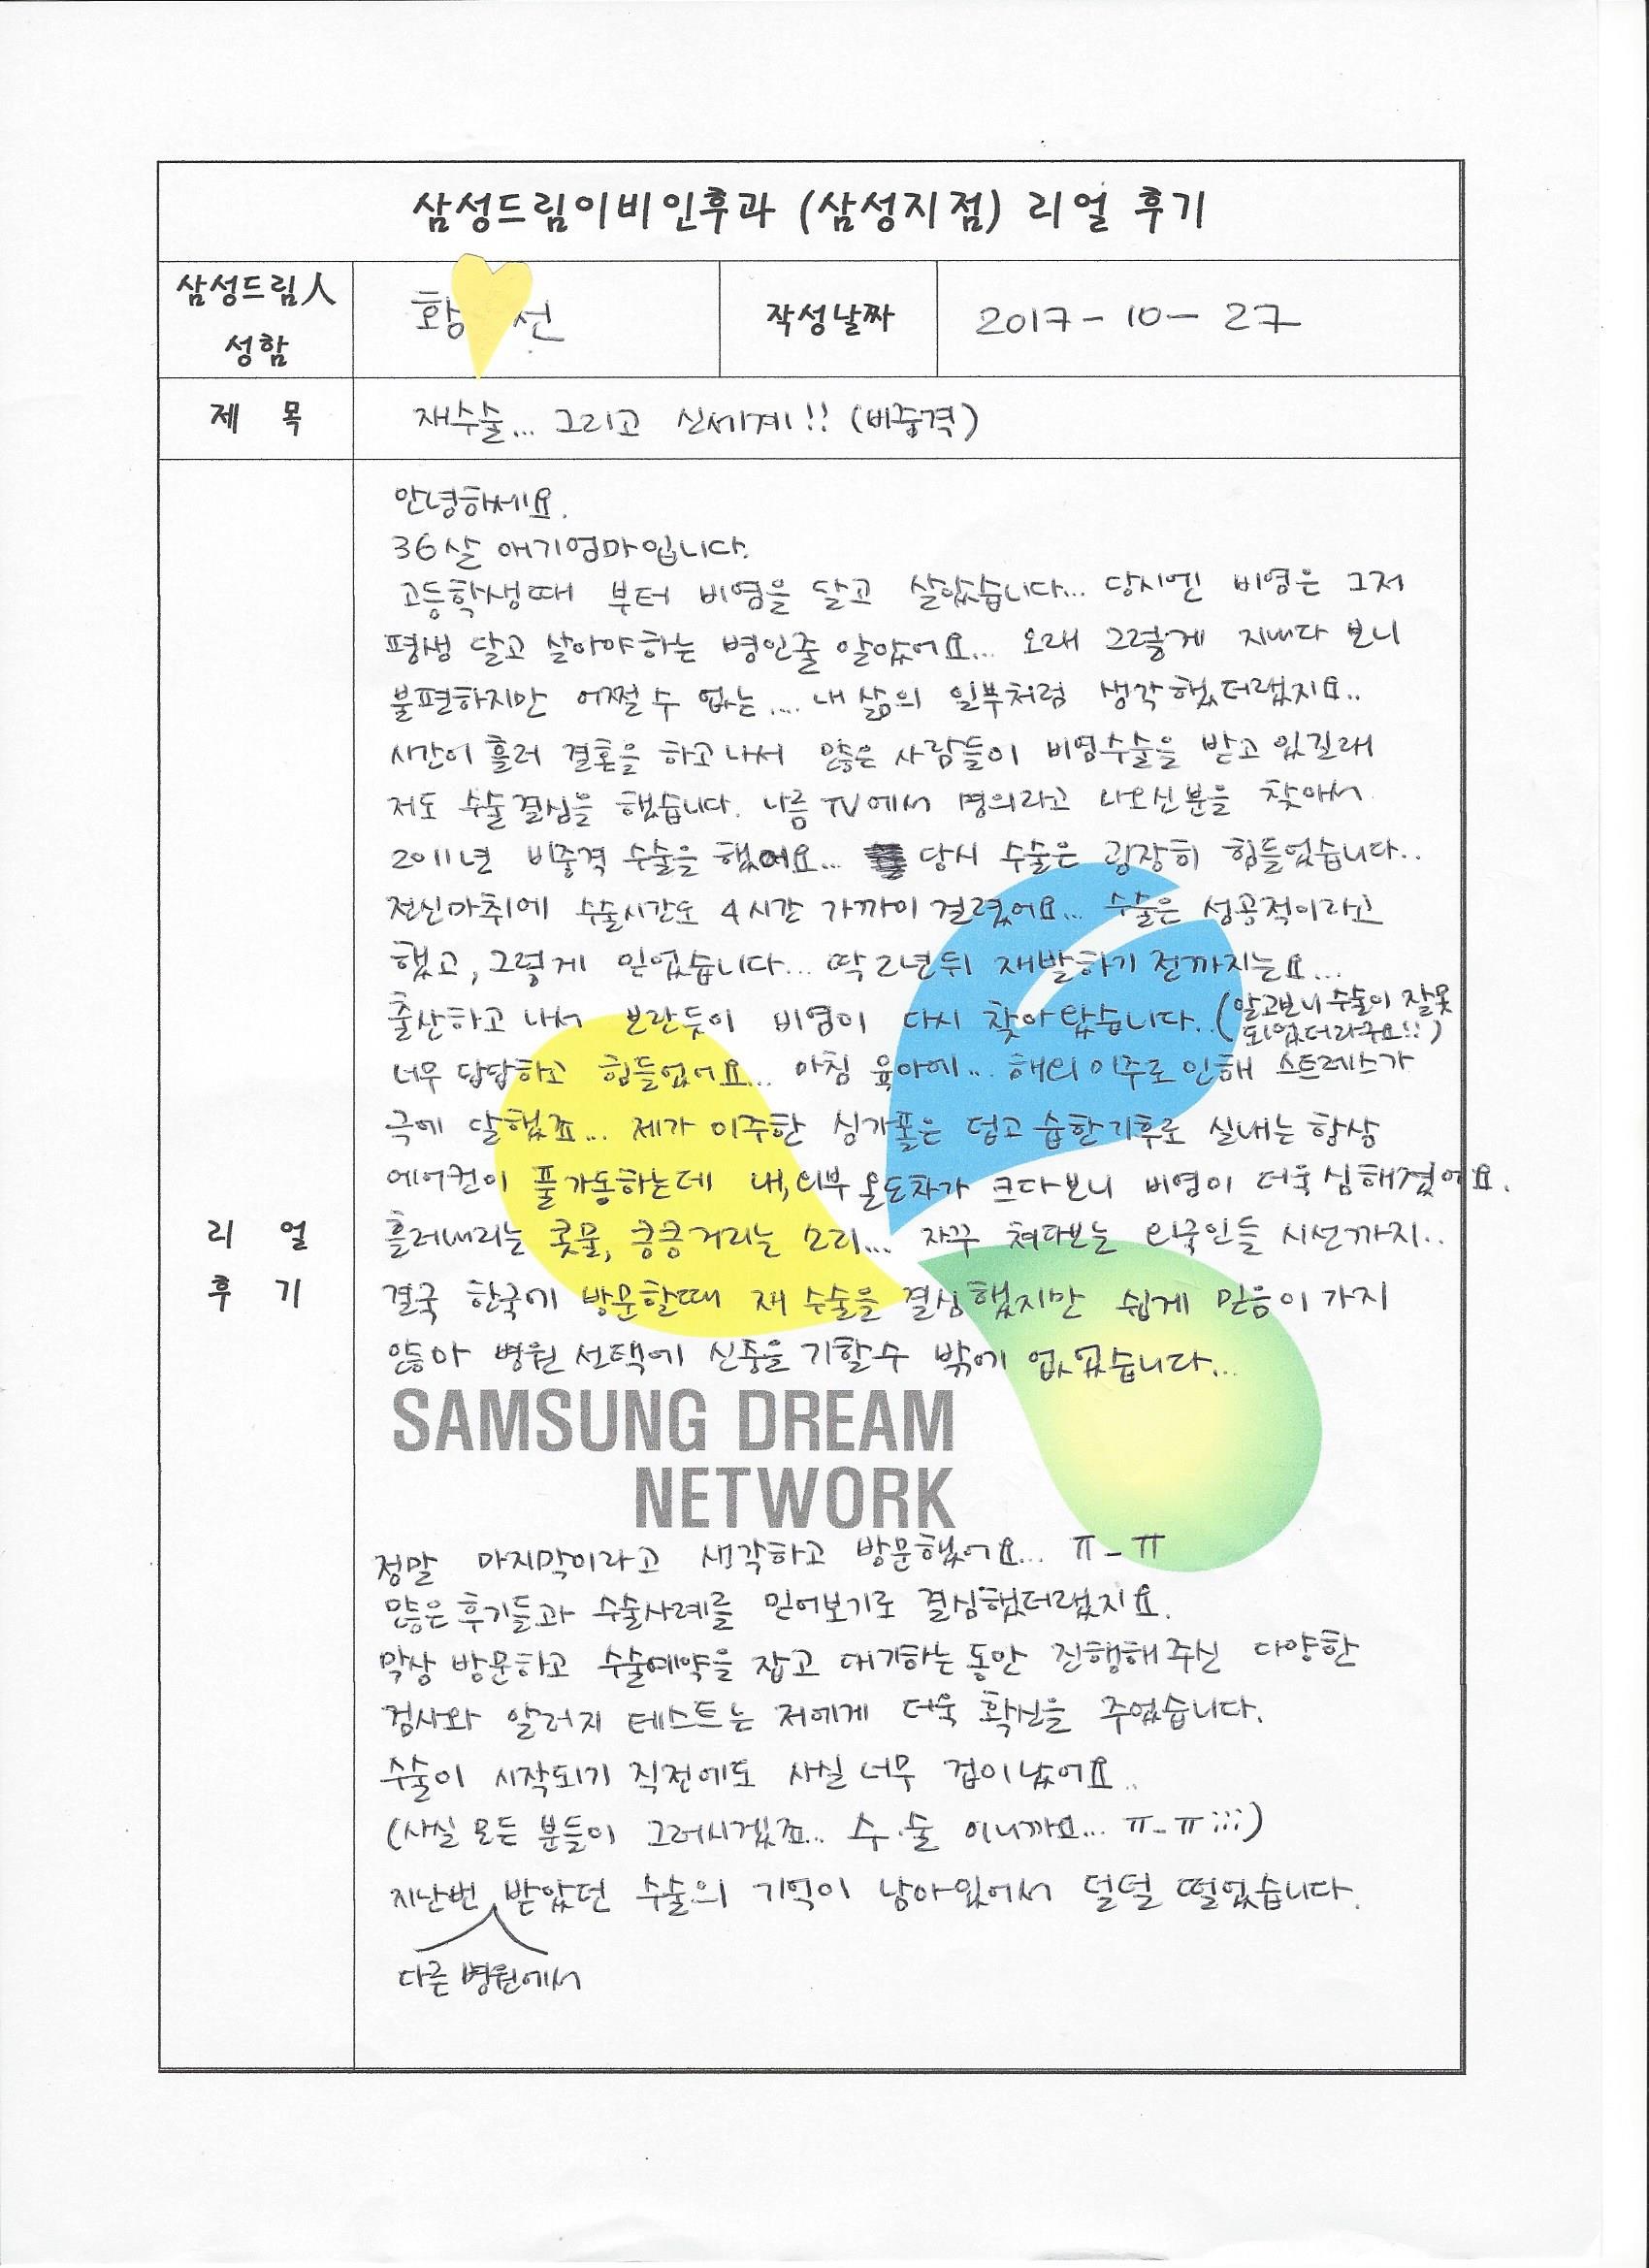 삼성드림이비인후과 (삼성지점) 리얼 후기
삼성드림人
성함
황 선
작성날짜
2017-10-27
제 목
재수술... 그리고 신세계!! (비중격)
안녕하세요.
36살 애기엄마입니다.
고등학생때 부터 비염을 달고 살았습니다... 당시엔 비염은 그저
평생 달고 살아야하는 병인줄 알았어요... 오래 그렇게 지내다 보니
불편하지만 어쩔 수 없는.... 내 삶의 일부처럼 생각했더랬지요..
시간이 흘러 결혼을 하고나서 많은 사람들이 비염수술을 받고 있길래
저도 수술결심을 했습니다. 나름 TV에서 명의라고 나오신분을 찾아서
2011년 비중격 수술을 했어요... 당시 수술은 굉장히 힘들었습니다..
전신마취에 수술시간도 4시간 가까이 걸렸어요... 수술은 성공적이라고
했고, 그렇게 믿었습니다... 딱 2년뒤 재발하기 전까지는요...
출산하고 나서 보란듯이 비염이 다시 찾아왔습니다..(알고보니 수술이 잘못
되었더라구요!!)
너무 답답하고 힘들었어요... 아침 육아에... 해외이주로 인해 스트레스가
극에 달했죠... 제가 이주한 싱가폴은 덥고 습한기후로 실내는 항상
에어컨이 풀가동하는데 내,외부 온도차가 크다보니 비염이 더욱 심해졌어요.
흘러내리는 콧물, 킁킁거리는 소리... 자꾸 쳐다보는 외국인들 시선까지..
리 얼
후 기
결국 한국에 방문할때 재 수술을 결심했지만 쉽게 믿음이 가지
않아 병원선택에 신중을 기할수 밖에 없었습니다...
SAMSUNG DREAM
NETWORK
정말 마지막이라고 생각하고 방문했어요... ㅠ_ㅠ
많은후기들과 수술사례를 믿어보기로 결심했더랬지요.
막상 방문하고 수술예약을 잡고 대기하는동안 진행해주신 다양한
검사와 알러지 테스트는 저에게 더욱 확신을 주었습니다.
수술이 시작되기 직전에도 사실 너무 겁이났어요..
(사실 모든 분들이 그러시겠죠... 수.술 이니까요... ㅠ_ㅠ;;;)
지난번 받았던 수술의 기억이 남아있어서 덜덜 떨었습니다.
다른 병원에서